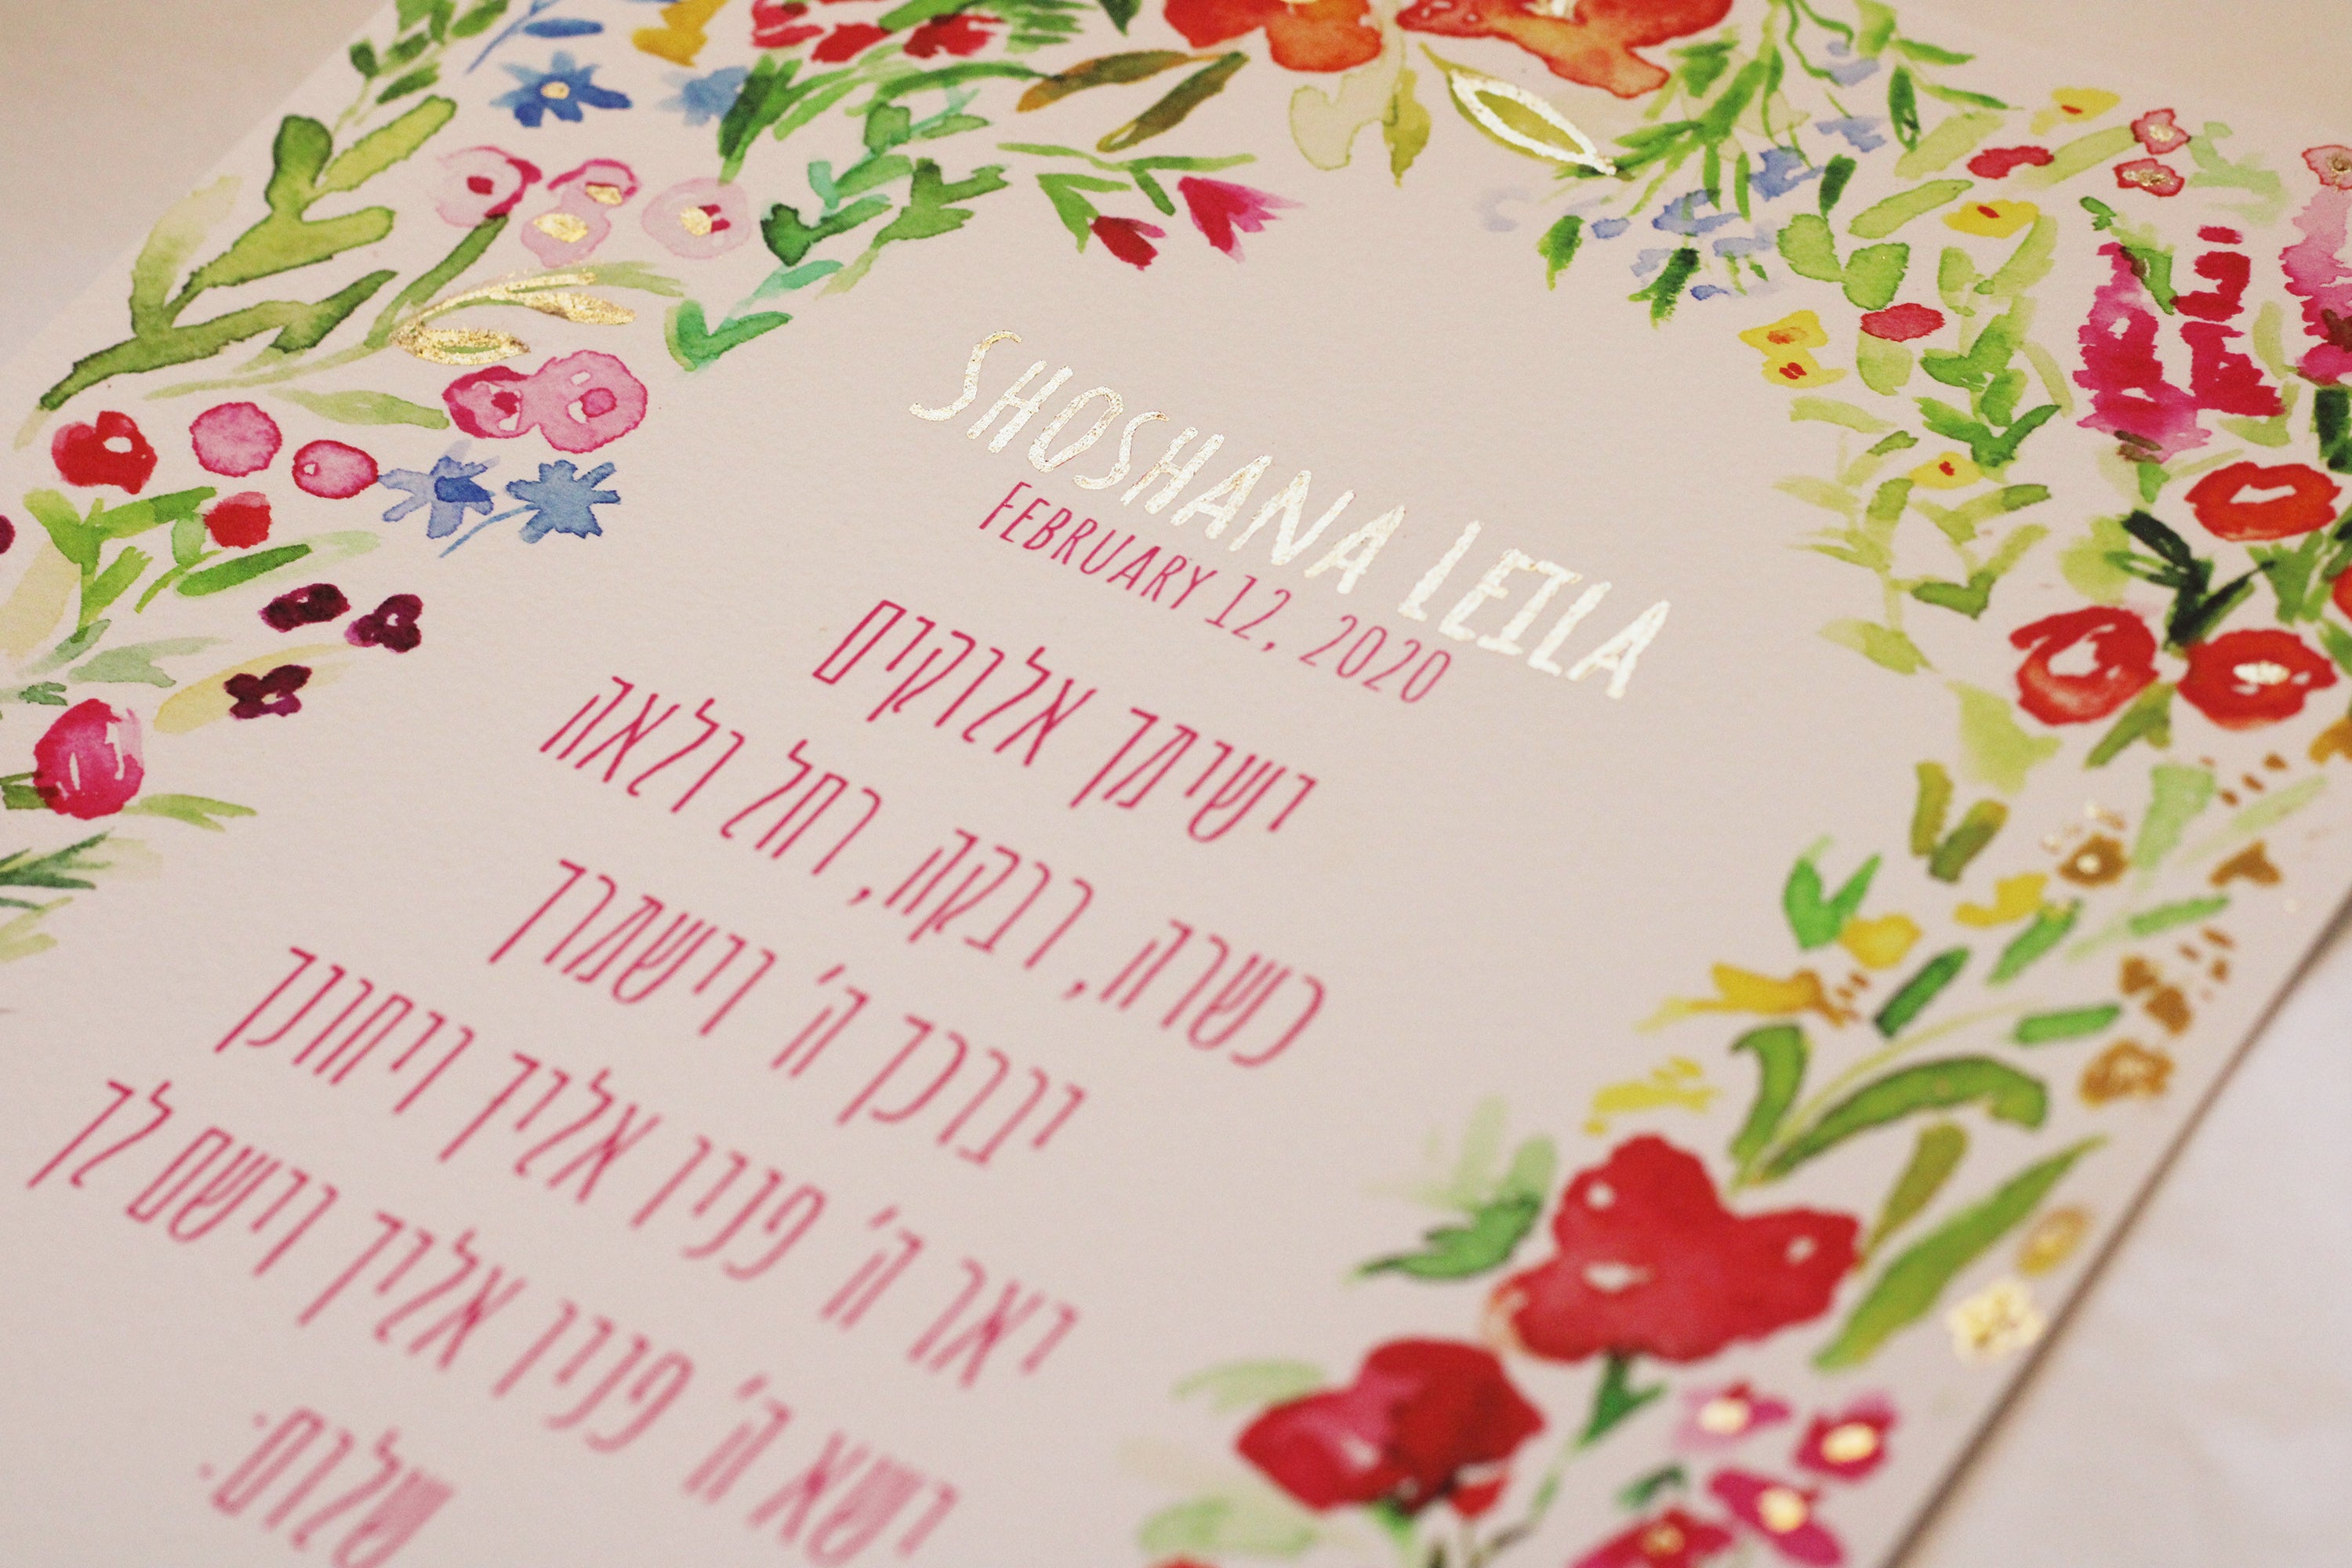 SHOSHANA LEILA
FEBRUARY 12, 2020
ישימך אלוקים
כשרה, רבקה, רחל ולאה
יברכך ה׳ וישמרך
יאר ה׳ פניו אליך ויחונך
ישא ה׳ פניו אליך וישם לך
שלום: